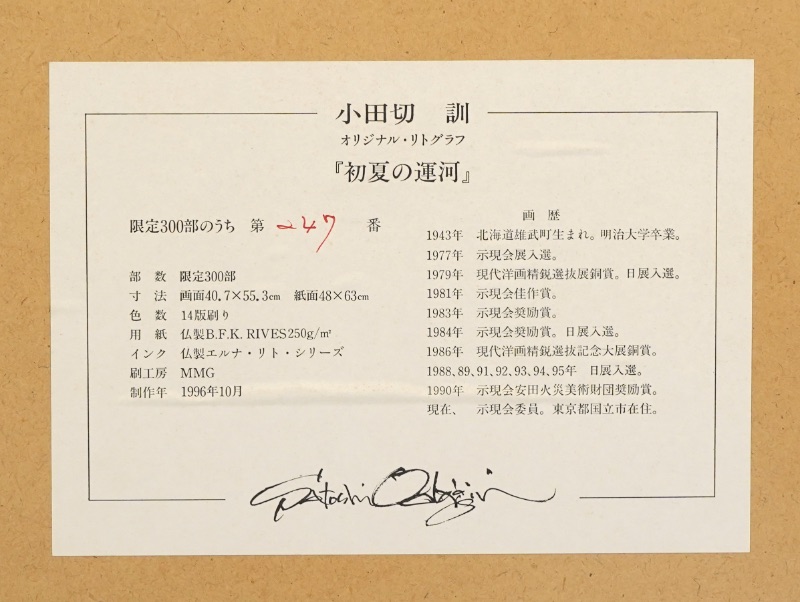 小田切 訓
オリジナル・リトグラフ
『初夏の運河』
限定300部のうち 第 247 番
部 数 限定300部
寸 法 画面40.7×55.3㎝ 紙面48×63㎝
色 数 14版刷り
用 紙 仏製B.F.K. RIVES250g/㎡
インク 仏製エルナ・リト・シリーズ
刷工房 MMG
制作年 1996年10月
画 歴
1943年 北海道雄武町生まれ。明治大学卒業。
1977年 示現会展入選。
1979年 現代洋画精鋭選抜展銅賞。日展入選。
1981年 示現会佳作賞。
1983年 示現会奨励賞。
1984年 示現会奨励賞。日展入選。
1986年 現代洋画精鋭選抜記念大展銅賞。
1988,89,91,92,93,94,95年 日展入選。
1990年 示現会安田火災美術財団奨励賞。
現在、 示現会委員。東京都国立市在住。